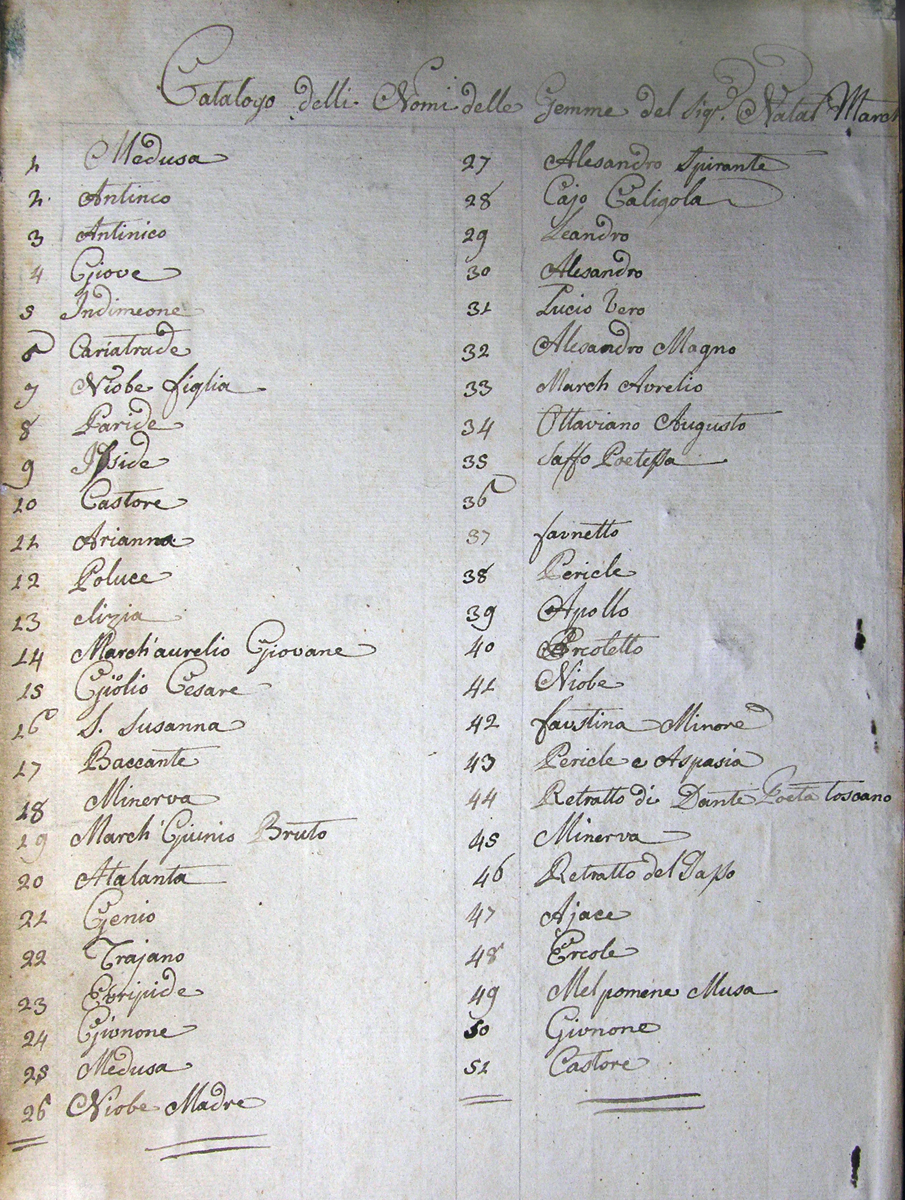 Catalogo delli Nomi delle Gemme del Sigr. Natal March
1 Medusa
2. Antinco
3 Antinico
4 Giove
5 Indimeone
6 Cariatrade
7 Niobe figlia
8 Paride
9 Ifside
10 Castore
11 Arianna
12 Poluce
13 clizia
14 March'aurelio Giovane
15 Giolio Cesare
16 S. Susanna
17 Baccante
18 Minerva
19 March' Giunio Bruto
20 Atalanta
21 Genio
22 Trajano
23 Evripide
24 Givnone
25 Medusa
26 Niobe Madre
27 Alesandro Spirante
28 Cajo Caligola
29 Leandro
30 Alesandro
31 Lucio Vero
32 Alesandro Magno
33 March Avrelio
34 Ottaviano Augusto
35 Saffo Poetessa
36
37 favnetto
38 Pericle
39 Apollo
40 Ercoletto
41 Niobe
42 favstina Minore
43 Pericle e Aspasia
44 Retratto di Dante Poeta toscano
45 Minerva
46 Retratto del Dasso
47 Ajace
48 Ercole
49 Melpomene Musa
50 Givnone
51 Castore